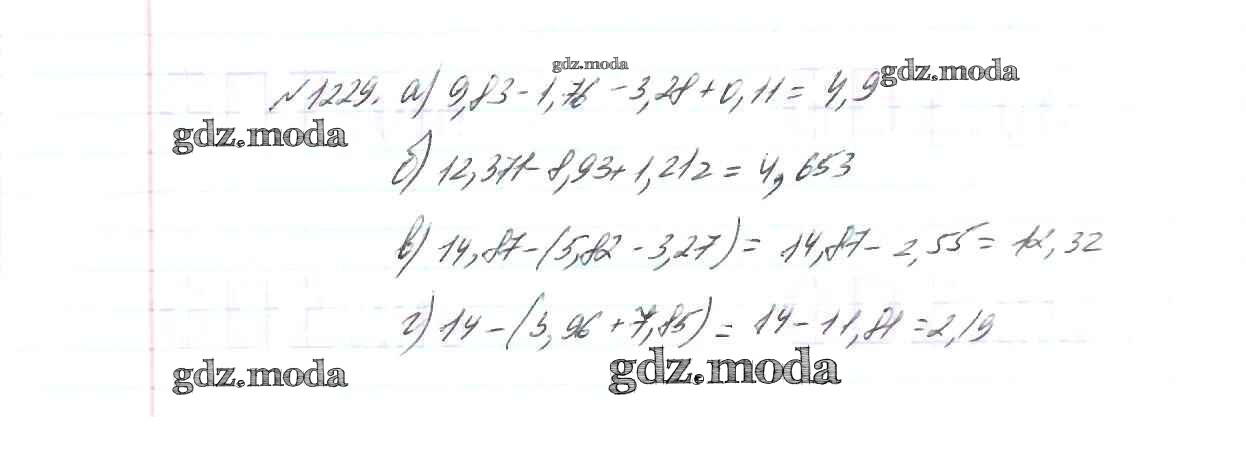 gdz.moda
№1229. а) 9,83 - 1,76 - 3,28 + 0,11 = 4,9
gdz.moda
gdz.moda
б) 12,371 - 8,93 + 1,212 = 4,653
в) 14,87 - (5,82 - 3,27) = 14,87 - 2,55 = 12,32
г) 14 - (3,96 + 7,85) = 14 - 11,81 = 2,19
gdz.moda
gdz.moda